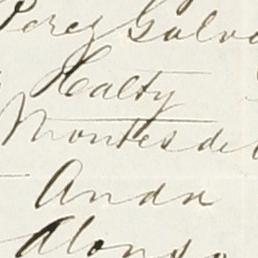 Perez Galvo
Healty
Montes de O
Anda
Alonso